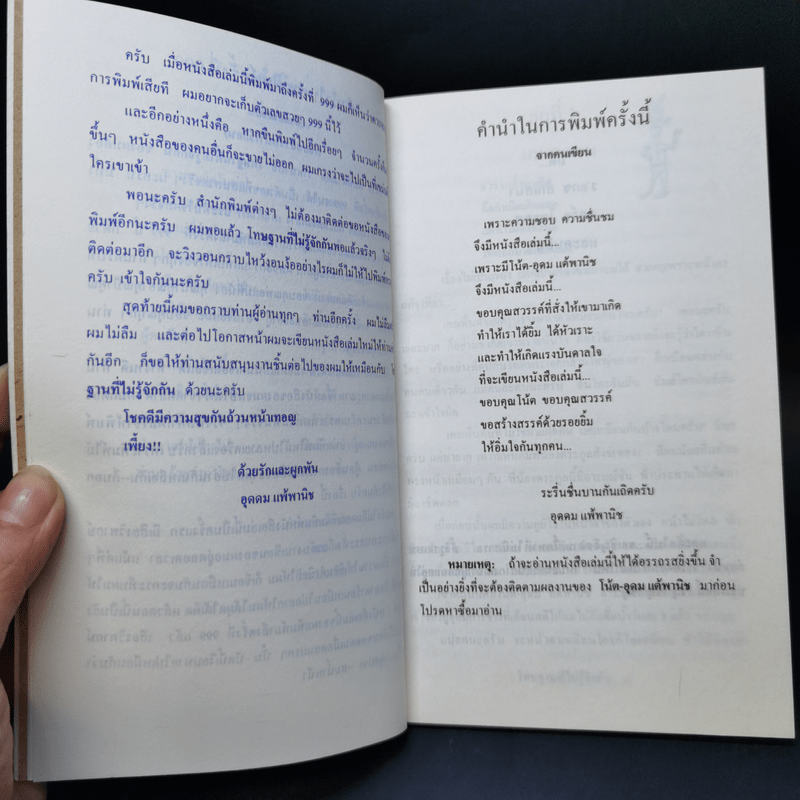 ครับ เมื่อหนังสือเล่มนี้พิมพ์มาถึงครั้งที่ 999 ผมก็เห็นว่าควร
การพิมพ์เสียที ผมอยากจะเก็บตัวเลขสวยๆ 999 นี้ไว้
และอีกอย่างหนึ่งคือ หากขืนพิมพ์ไปอีกเรื่อยๆ จำนวนครั้ง
ขึ้นๆ หนังสือของคนอื่นก็จะขายไม่ออก ผมเกรงว่าจะไปเป็นที่
ใครเขาเข้า
พอนะครับ สำนักพิมพ์ต่างๆ ไม่ต้องมาติดต่อขอหนังสือ
พิมพ์อีกนะครับ ผมพอแล้ว โทษฐานที่ไม่รู้จักกันพอแล้วจริงๆ
ติดต่อมาอีก จะวิงวอนกราบไหว้งอนง้ออย่างไรผมก็ไม่ให้ไปพิมพ์
ครับ เข้าใจกันนะครับ
สุดท้ายนี้ผมขอกราบท่านผู้อ่านทุกๆ ท่านอีกครั้ง ผมไม่ลืม
ผมไม่ลืม และต่อไปโอกาสหน้าผมจะเขียนหนังสือเล่มใหม่ให้ท่าน
กันอีก ก็ขอให้ท่านสนับสนุนงานชิ้นต่อไปของผมให้เหมือนกับ
ฐานที่ไม่รู้จักกัน ด้วยนะครับ
โชคดีมีความสุขกันถ้วนหน้าเทอญ
เพี้ยง!!
ด้วยรักและผูกพัน
อุดดม แพ้พานิช
คำนำในการพิมพ์ครั้งนี้
จากคนเขียน
เพราะความชอบ ความชื่นชม
จึงมีหนังสือเล่มนี้...
เพราะมีโน้ต-อุดม แต้พานิช
จึงมีหนังสือเล่มนี้...
ขอบคุณสวรรค์ที่สั่งให้เขามาเกิด
ทำให้เราได้ยิ้ม ได้หัวเราะ
และทำให้เกิดแรงบันดาลใจ
ที่จะเขียนหนังสือเล่มนี้...
ขอบคุณโน้ต ขอบคุณสวรรค์
ขอสร้างสรรค์ด้วยรอยยิ้ม
ให้อิ่มใจกันทุกคน...
ระรื่นชื่นบานกันเถิดครับ
อุดดม แพ้พานิช
หมายเหตุ: ถ้าจะอ่านหนังสือเล่มนี้ให้ได้อรรถรสยิ่งขึ้น จำ
เป็นอย่างยิ่งที่จะต้องติดตามผลงานของ โน้ต-อุดม แต้พานิช มาก่อน
โปรดหาซื้อมาอ่าน